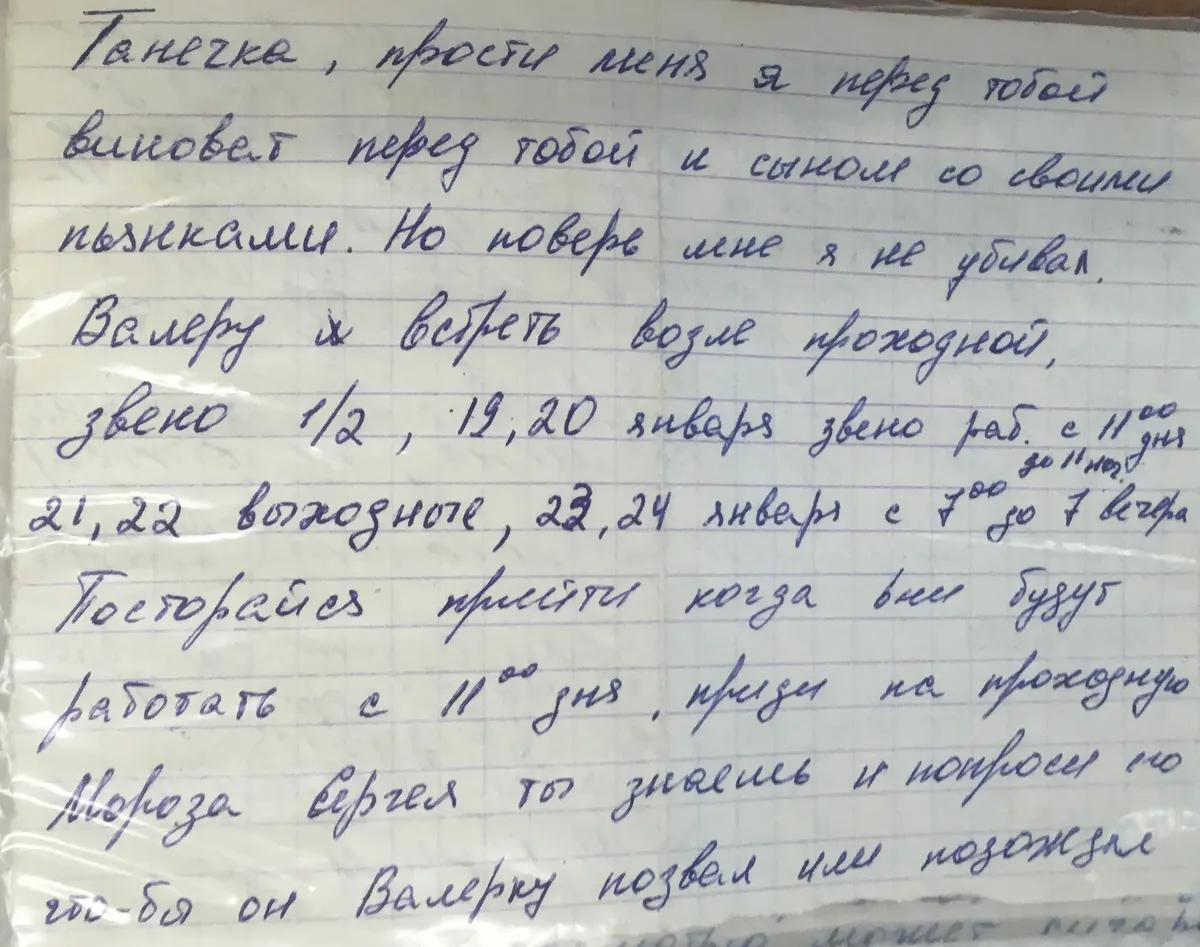 Танечка, прости меня я перед тобой
виноват перед тобой и сыном со своими
пьянками. Но поверь мне я не убивал.
Валеру и встреть возле проходной,
звено 1/2, 19, 20 января звено раб. с 11⁰⁰ дня
до 11 ноч.
21, 22 выходные, 23, 24 января с 7⁰⁰ до 7 вечера
Посторайся прийти когда они будут
работать с 11⁰⁰ дня, приди на проходную
Мороза Сергея ты знаешь и попроси его
что-бы он Валерку позвал или подождал
может